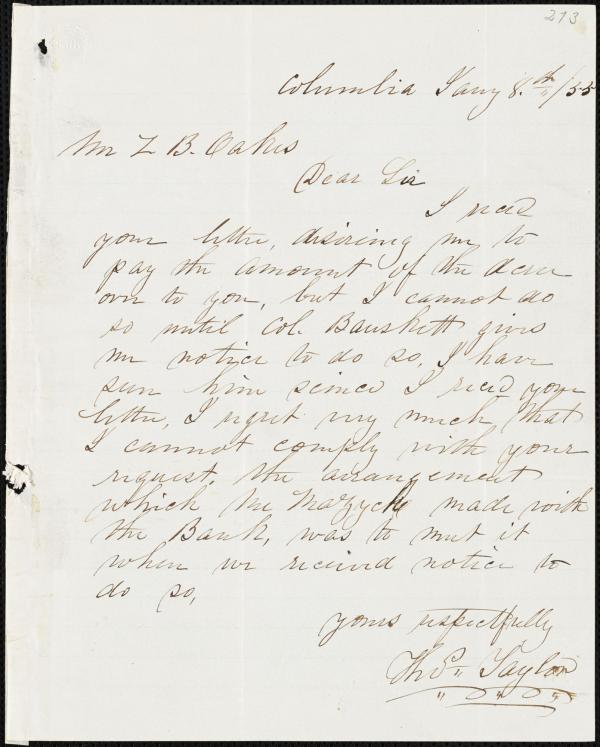 273
Columbia Jany 8.th/55
Mr Z B. Oakes
Dear Sir
I recd
your letter, desiring me to
pay the amount of the
over to you, but I cannot do
so until Col. Bauskett gives
me notice to do so, I have
seen him scince I recd your
letter, I regret very much that
I cannot comply with your
request, the arrangement
which Mr Mazyck made with
the Bank, was to meet it
when we received notice to
do so,
yours respectfully
Taylor